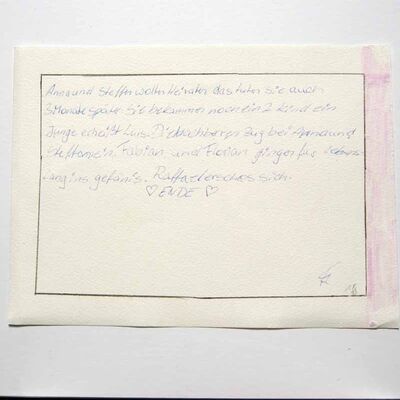 Anna und Steffen wollen Heiraten das tuhen sie auch
3 Monate später. Sie bekommen noch ein 2 kind ein
Junge er heißt Luis. Die zug bei Anna und
Steffen ein. Fabian und Florian gingen für lebens
lang ins gefänis. Raffael erschos sich.
♡ ENDE ♡
18